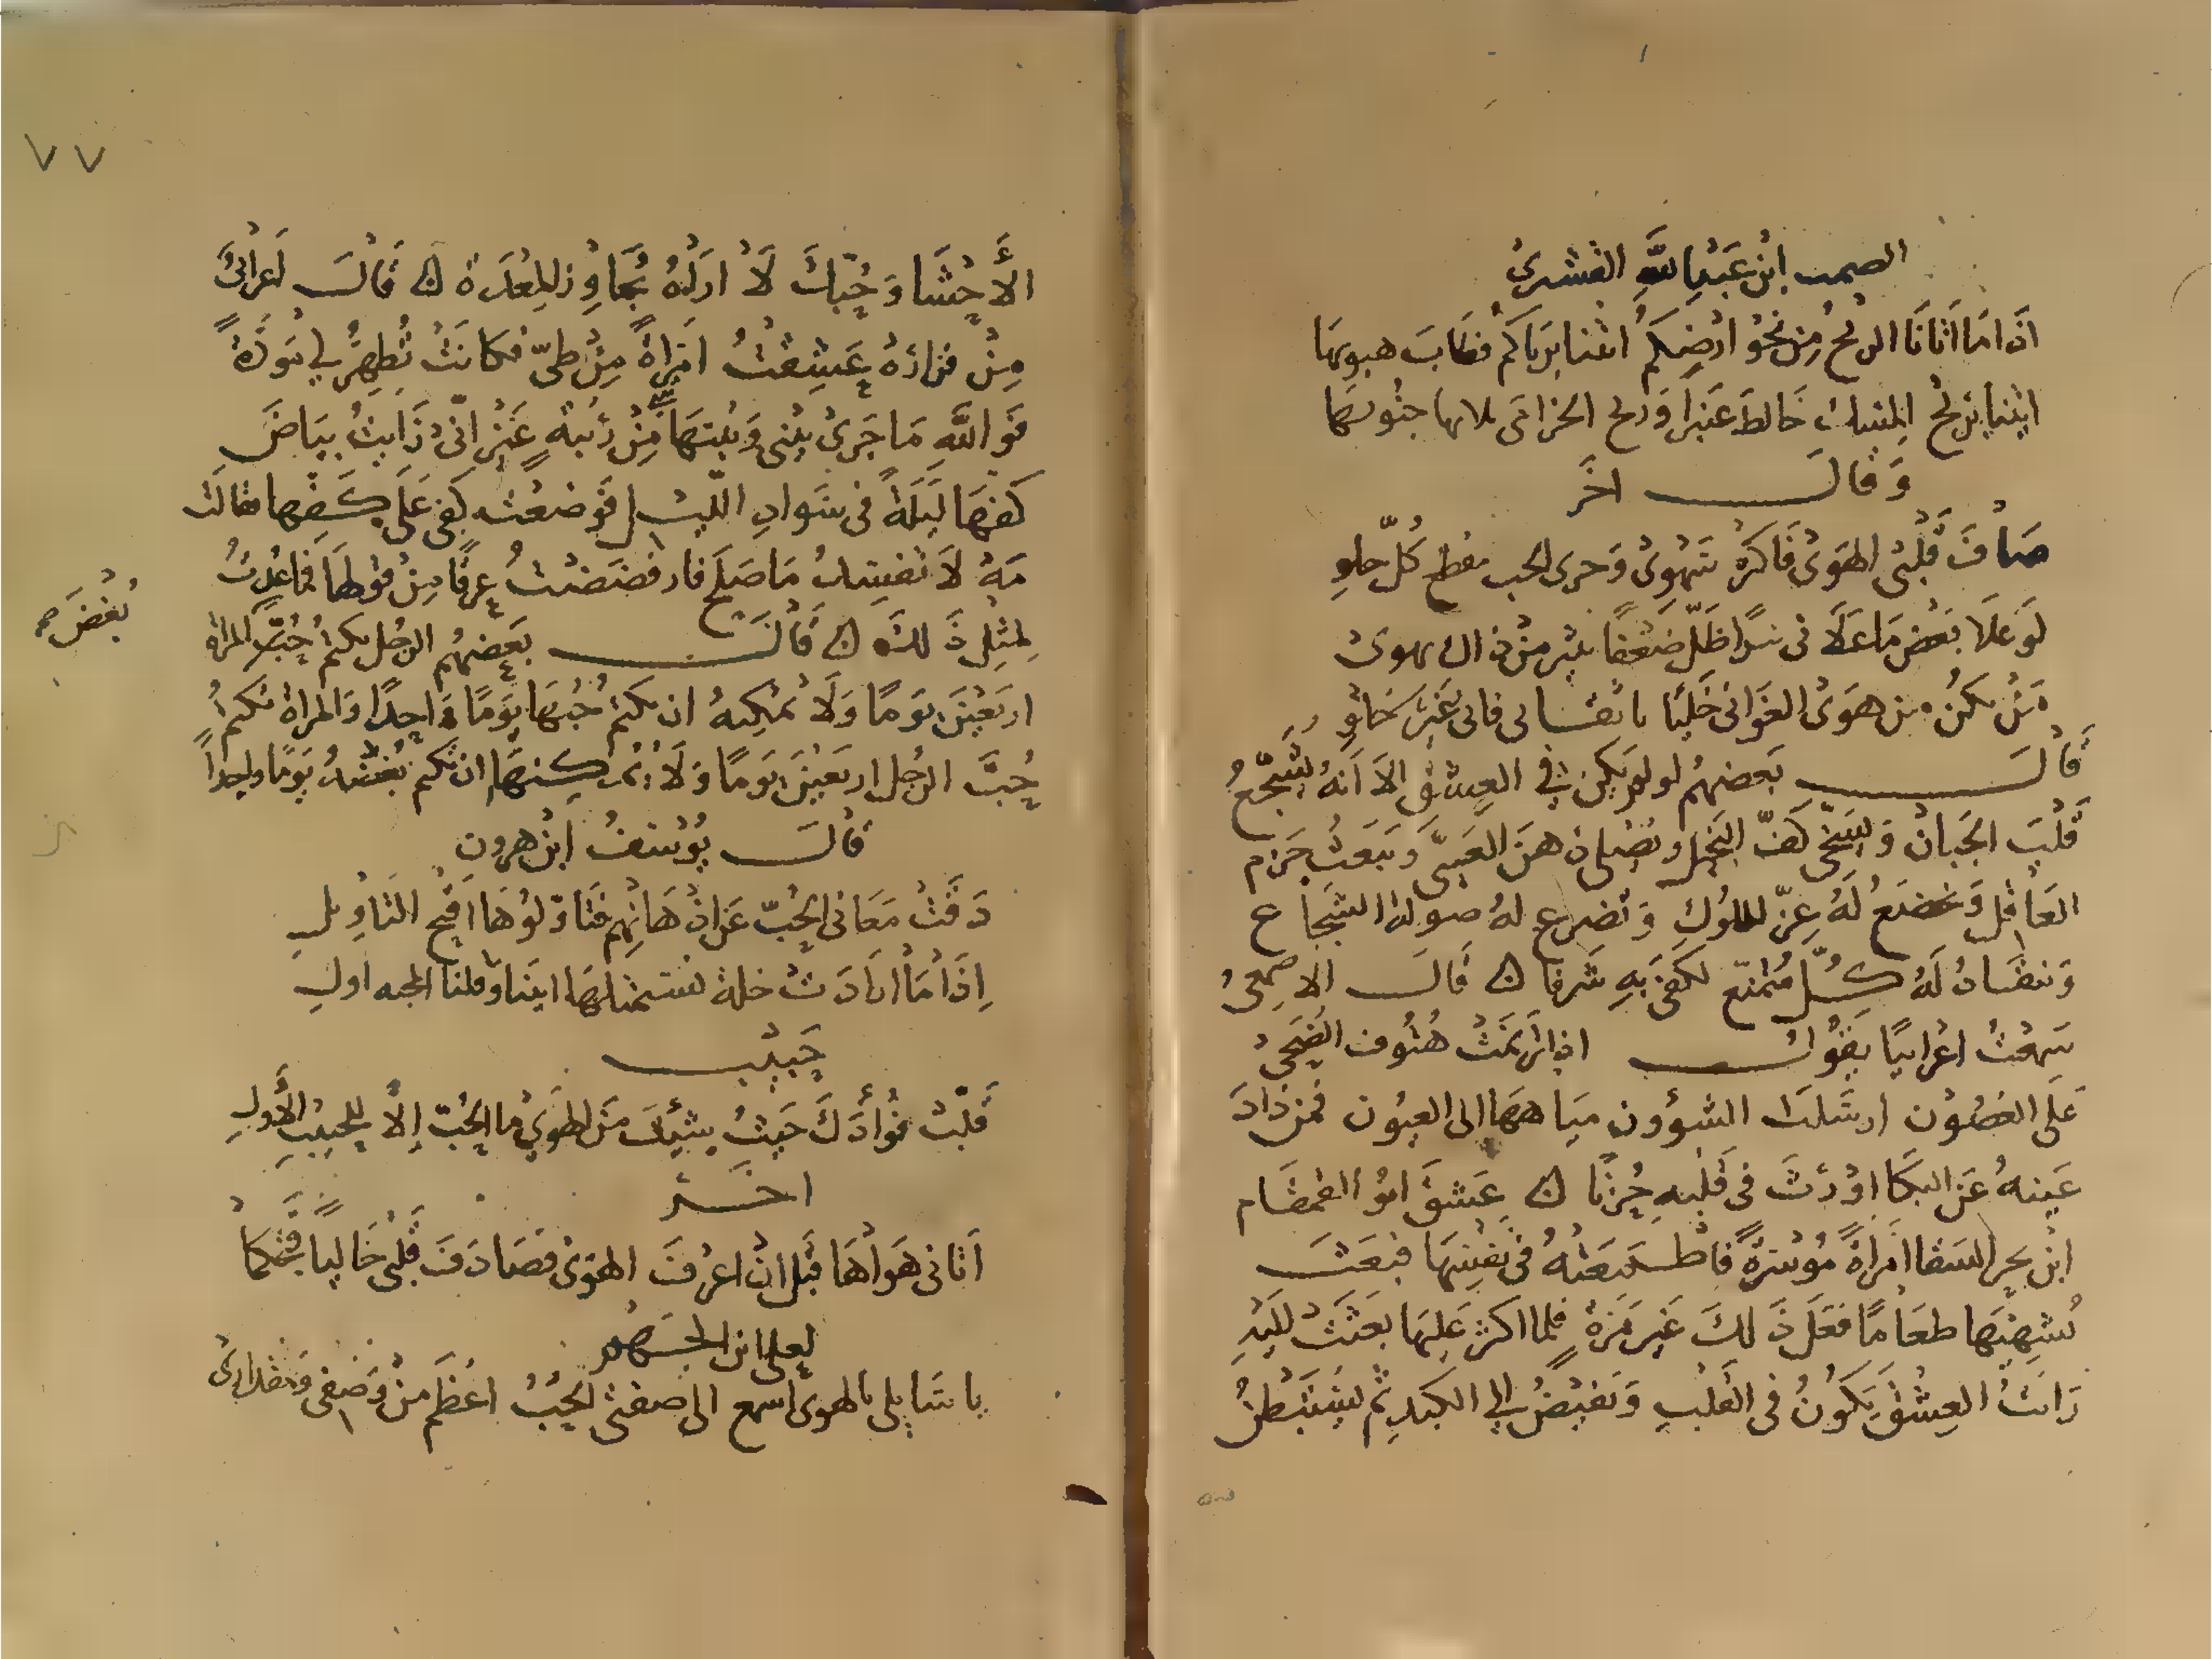 الصمت ابن عبد الله القشيري
اذا ما اتانا الريح من نحو ارضكم اتتنا برياكم فطاب هبوبها
اتتنا بريح المسك خالط عنبرا وريح الخزامى جنوبها
وقال اخر
صادف قلبي الهوى فاكثر سهوى وجرى الحب كل حلو
لو علا بعض ما علاني ظل ضعفا من ذاك يهوى
من يكن من هوى الغواني خليا يا ثقاتي فاني غير خلو
قال بعضهم لو لم يكن في العشق الا انه يشجع
قلب الجبان ويسخي كف البخيل ويصفي ذهن الغبي ويبعث حزم
العاقل ويخضع له عز الملوك وتضرع له صولة الشجاع
وينقاد له كل ممتنع لكفى به شرفا ن قال الاصمعي
سمعت اعرابيا يقول اذا ترنمت هتوف الضحى
على الغصون ارسلت الشؤون مياهها الى العيون فمن ذاد
عينه عن البكا اورث في قلبه حزنا ن عشق ابو القمقام
ابن بحر السقا امراة موسرة فاطمعته في نفسها فبعث
يستهديها طعاما ففعل ذلك غير مرة فلما اكثر عليها بعثت اليه
رايت العشق يكون في القلب ويفيض الى الكبد ثم يستبطن
٧٧
الاحشا وحبك لا اراه يجاوز المعدة ن قال اعرابي
من فزارة عشقت امراة من طي فكانت تظهر لي مودة
فوالله ما جرى بيني وبينها من ريبة غير اني رايت بياض
كفها ليلة في سواد الليل فوضعت كفي على كفها فقالت
مه لا تفسد ما صلح فارفضضت عرقا من قولها فما عدت
لمثل ذلك ن قال بعضهم الرجل يكتم حب المراة
اربعين يوما ولا يمكنه ان يكتم حبها يوما واحدا والمراة تكتم
بغض صح
حب الرجل اربعين يوما ولا يمكنها ان تكتم بغضه يوما واحدا
قال يوسف ابن هرون
دقت معاني الحب عن اذهانهم فتاولوها اقبح التاويل
اذا ما ارادت خلة تستميلها ابينا وقلنا اول
حبيب
قلب فؤادك حيث شئت من الهوى ما الحب الا للحبيب الأول
اخر
اتاني هواها قبل ان اعرف الهوى فصادف قلبي خاليا فتمكنا
لعلي ابن الجهم
يا سايلي بالهوى اسمع الى صفتي الحب اعظم من وصفي ومقداري